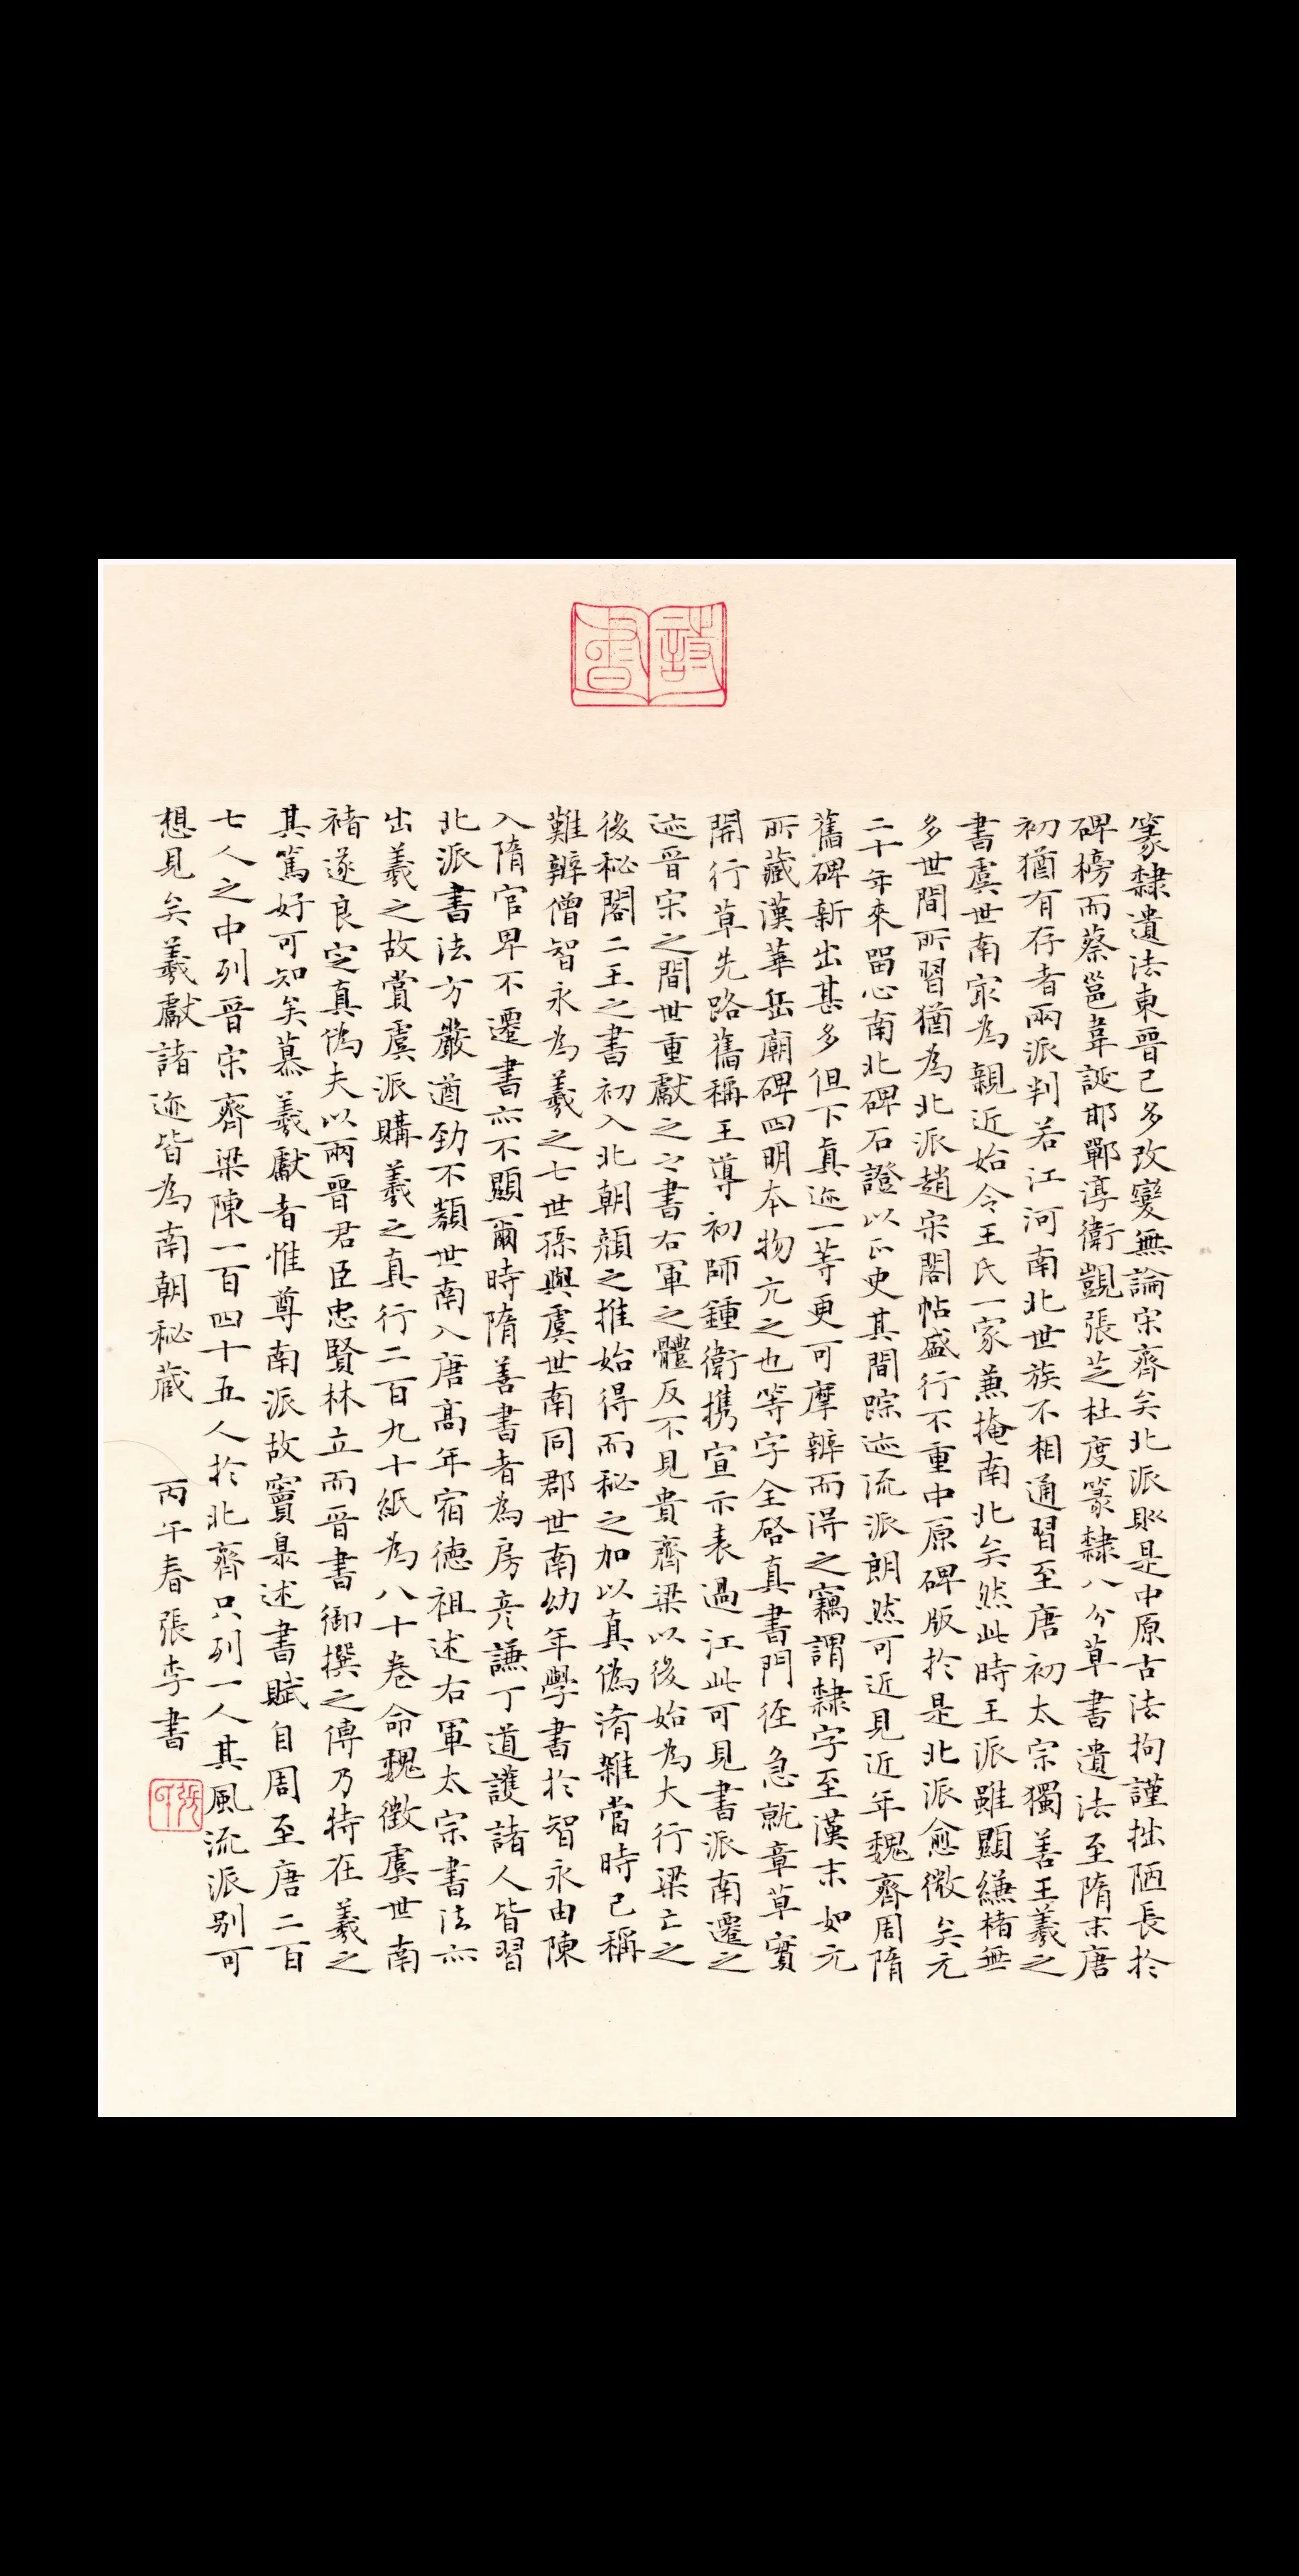 詩書
篆隸遺法東晉已多改變無論宋齊矣北派則是中原古法拘謹拙陋長於
碑榜而蔡邕韋誕邯鄲淳衛覬張芝杜度篆隸八分草書遺法至隋末唐
初猶有存者兩派判若江河南北世族不相通習至唐初太宗獨善王羲之
書虞世南冣為親近始令王氏一家兼掩南北矣然此時王派雖顯縑楮無
多世間所習猶為北派趙宋閣帖盛行不重中原碑版於是北派愈微矣元
二十年來留心南北碑石證以正史其間踪迹流派朗然可近見近年魏齊周隋
舊碑新出甚多但下真迹一等更可摩辨而得之竊謂隸字至漢末如元
所藏漢華岳廟碑四明本物亢之也等字全啓真書門徑急就章草實
開行草先路舊稱王導初師鍾衛攜宣示表過江此可見書派南遷之
迹晉宋之間世重獻之之書右軍之體反不見貴齊梁以後始為大行梁亡之
後秘閣二王之書初入北朝顏之推始得而秘之加以真偽淆雜當時已稱
難辨僧智永為羲之七世孫與虞世南同郡世南幼年學書於智永由陳
入隋官卑不遷書亦不顯爾時隋善書者為房彥謙丁道護諸人皆習
北派書法方嚴遒勁不類世南入唐高年宿德祖述右軍太宗書法亦
出羲之故賞虞派購羲之真行二百九十紙為八十卷命魏徵虞世南
褚遂良定真偽夫以兩晉君臣忠賢林立而晉書御撰之傳乃特在羲之
其篤好可知矣慕羲獻者惟尊南派故竇臮述書賦自周至唐二百
七人之中列晉宋齊梁陳一百四十五人於北齊只列一人其風流派别可
想見矣羲獻諸迹皆為南朝秘藏 丙午春張李書